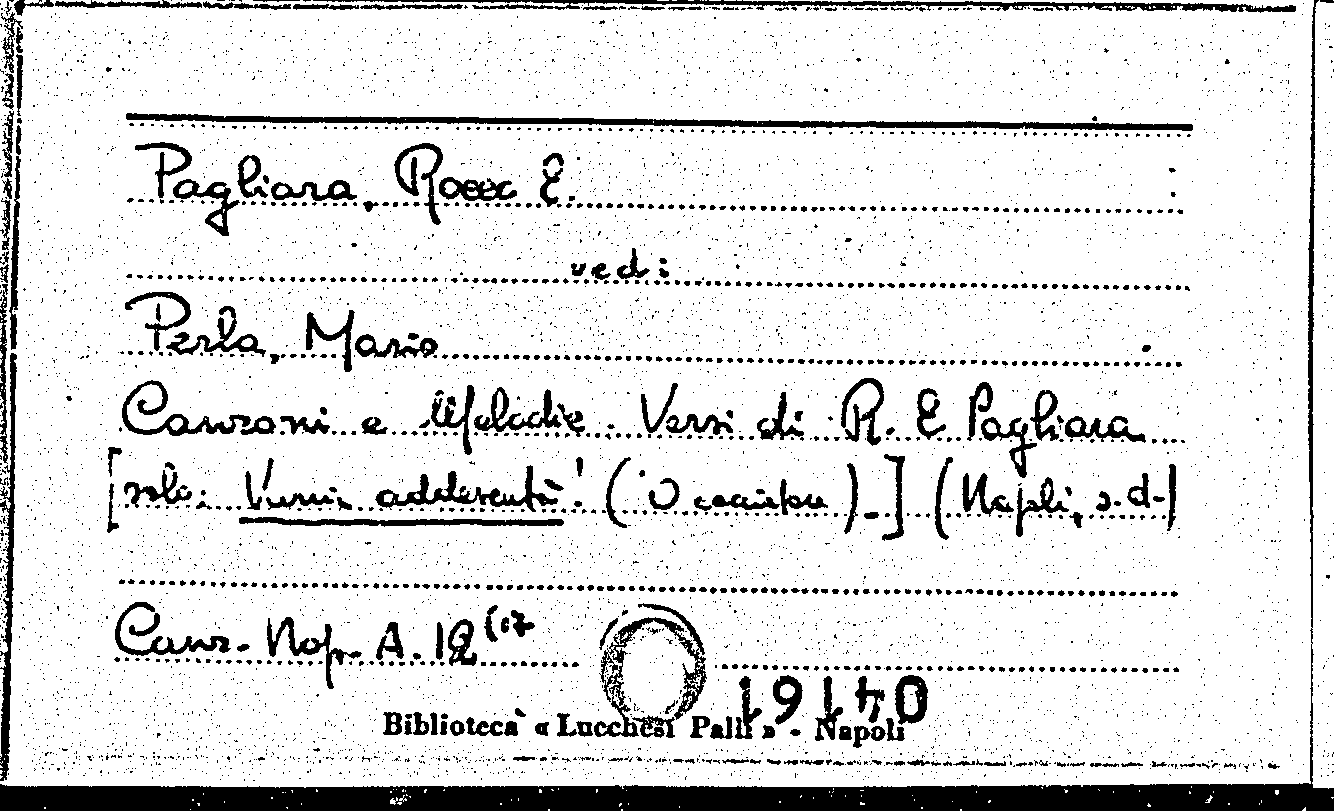 Pagliara, Rocco E.
vedi:
Perla, Mario
Canzoni e Melodie. Versi di R. E Pagliara
[solo: addeventà! ( ).] (Napoli, s.d.)
Canz. Nap. A. 12 (17
19140
Biblioteca « Lucchesi Palli » - Napoli